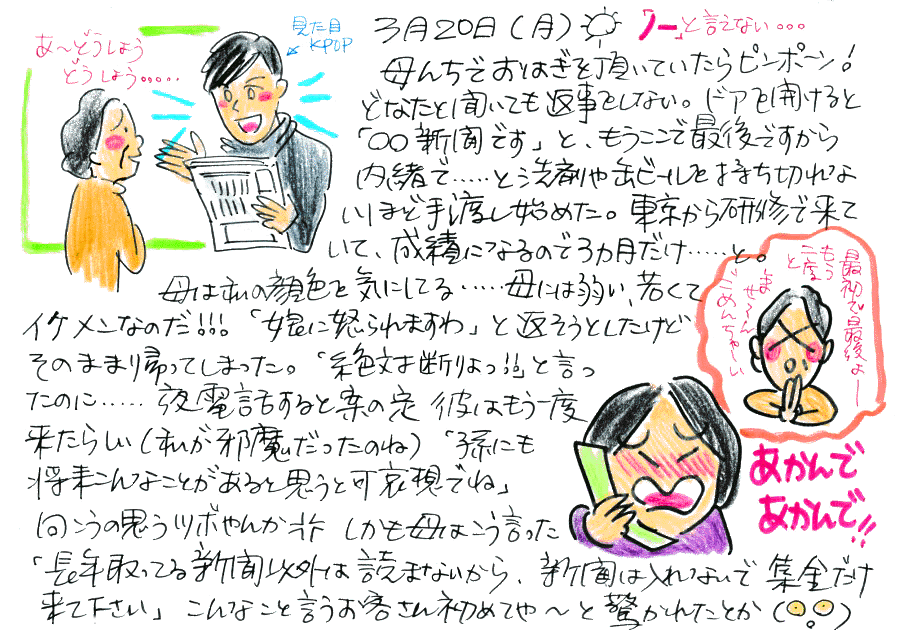 3月20日(月) 「ノー」と言えない…
見た目
KPOP
あ〜どうしよう
どうしよう……
母んちでおはぎを頂いていたらピンポーン!
どなたと聞いても返事をしない。ドアを開けると
「○○新聞です」と、もうここで最後ですから
内緒で……と洗剤や缶ビールを持ち切れな
いほど手渡し始めた。東京から研修で来て
いて、成績になるので3ヵ月だけ……と。
母は私の顔色を気にしてる……母には弱い、若くて
イケメンなのだ!!!「娘に怒られますわ」と返そうとしたけど
そのまま帰ってしまった。「絶対断りよっ!!」と言っ
たのに……夜電話すると案の定 彼はもう一度
来たらしい(私が邪魔だったのね)「孫にも
将来こんなことがあると思うと可哀想でね」
向こうの思うツボやんかー しかも母はこう言った
「長年取ってる新聞以外は読まないから、新聞は入れないで集金だけ
来て下さい」こんなこと言うお客さん初めてや〜と驚かれたとか
最初で最後よー
もう
二度と
ませ〜ん
ごめんちゃーい
あかんで
あかんで!!